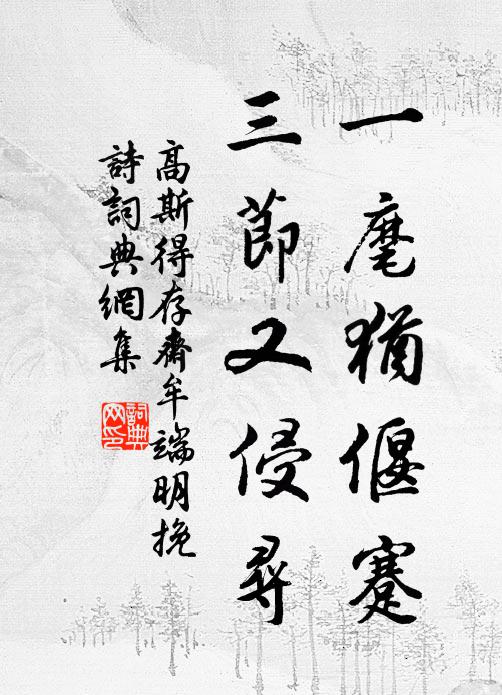 一麾猶偃蹇
三節又侵尋
高斯得存齋牟端明挽
詩詞典網集
詞典
网印